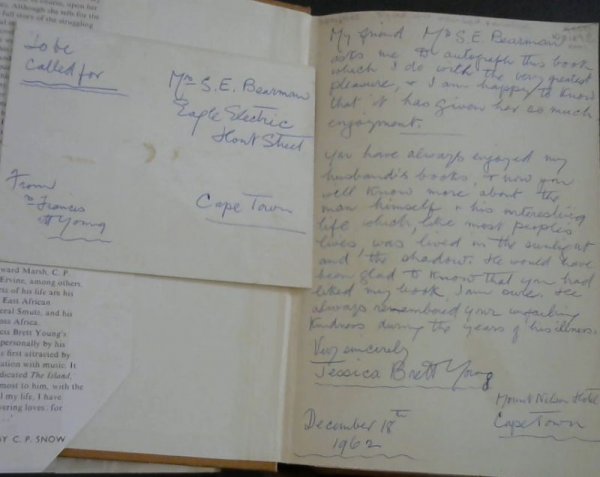 of course, upon her
Although she tells for the
full story of the struggling
To be
called for
Mrs S. E. Bearman
Eagle Electric
Hout Street
Cape Town
From
Mrs Francis
B Young
Edward Marsh, C. P.
Ervine, among others.
of his life are his
East African
General Smuts, and his
South Africa.
Brett Young's
personally by his
first attracted by
ation with music. It
dedicated The Island,
most to him, with the
my life, I have
loves: for
BY C. P. SNOW
My friend Mrs S. E. Bearman
asks me to autograph this book
which I do with the very greatest
pleasure, & I am happy to know
that it has given her so much
enjoyment.
You have always enjoyed my
husband's books, & now you
well know more about the
man himself & his interesting
life which, like most peoples
lives, was lived in the sunlight
and the shadow. He would have
been glad to know that you had
liked my book, I am sure. He
always remembered your unfailing
kindness during the years of his illness.
Very sincerely
Jessica Brett Young
Mount Nelson Hotel
Cape Town
December 18th
1962